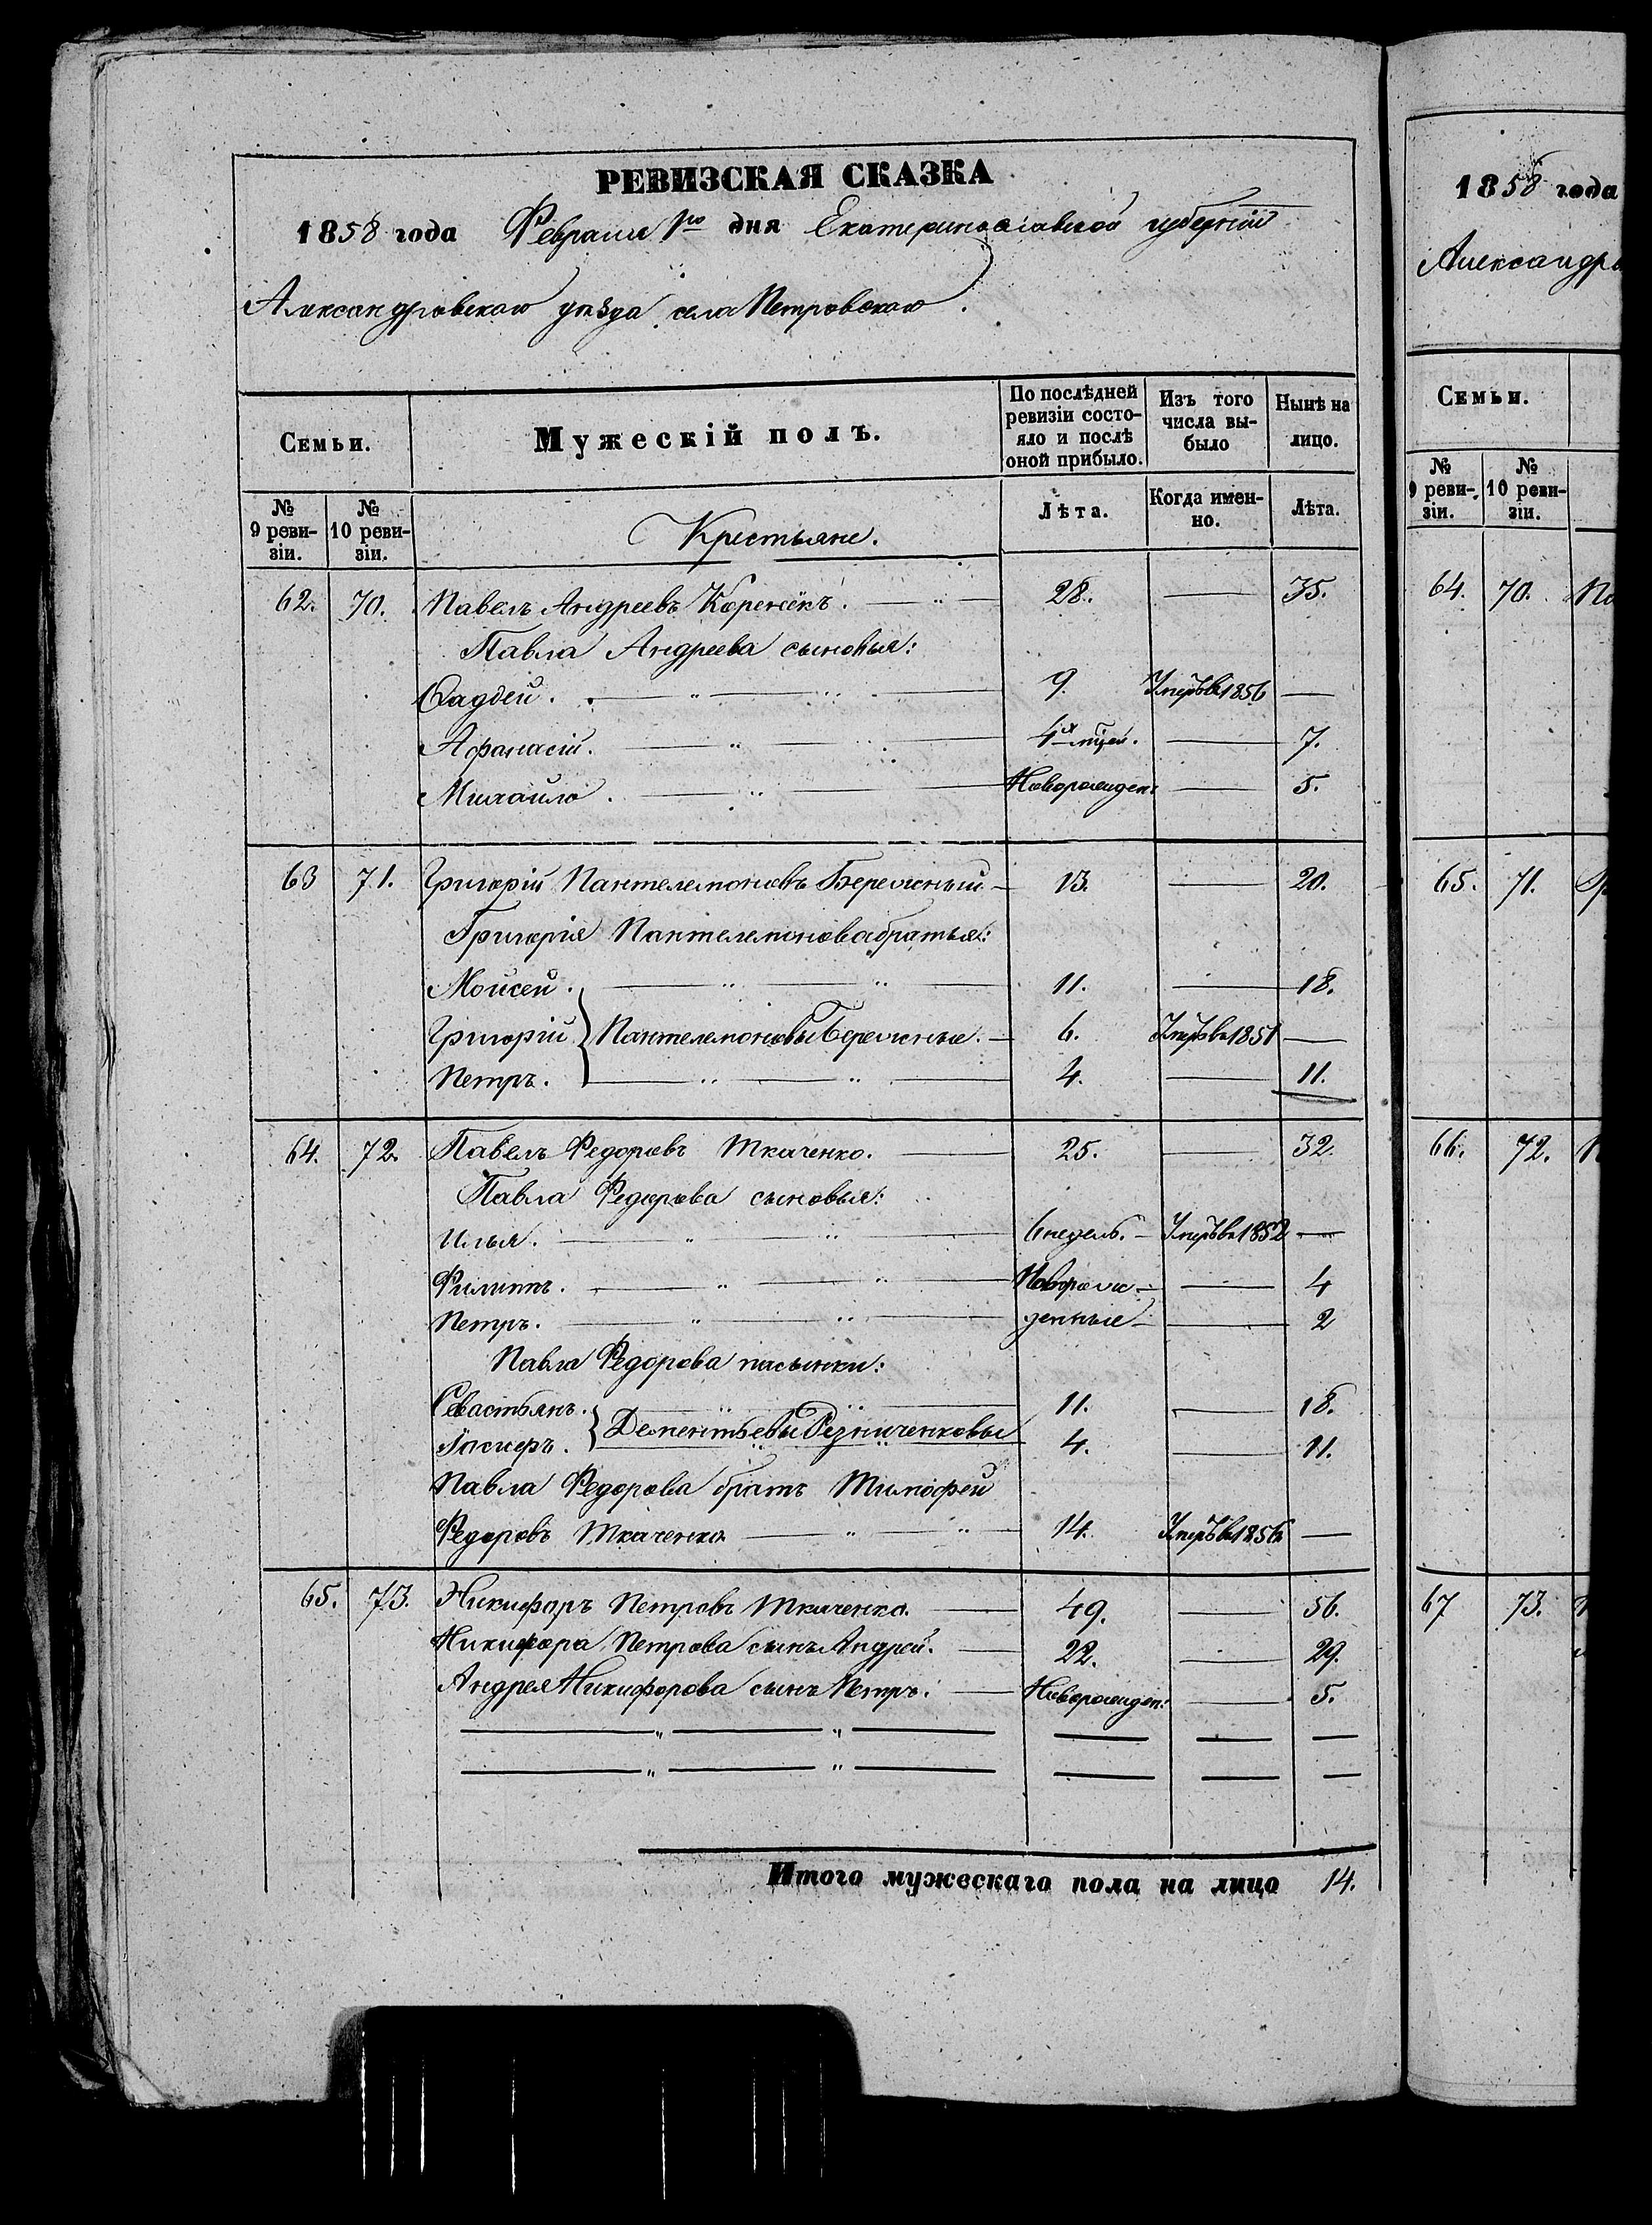 РЕВИЗСКАЯ СКАЗКА
1858 года Февраля 1го дня Екатеринославской губерніи
Александровскаго уѣзда, села Петровскаго.
Семьи.
Мужескій полъ.
По послѣдней ревизіи состояло и послѣ оной прибыло.
Изъ того числа выбыло
Нынѣ на лицо.
№ 9 ревизіи.
№ 10 ревизіи.
Крестьяне.
Лѣта.
Когда именно.
Лѣта.
62. 70. Павелъ Андреевъ 28. 35.
Павла Андреева сыновья:
Фаддей. 9. Умеръ въ 1856
Афанасій. 4х мѣсяц. 7.
Михайло. Новорожден: 5.
63 71. Григорій Пантелемоновъ Бережный 13. 20.
Григорія Пантелемонова братья:
Мойсей. 11. 18.
Григорій Пантелемоновы Бережные. 6. Умеръ въ 1851
Петръ. 4. 11.
64. 72. Павелъ Федоровъ Ткаченко. 25. 32.
Павла Федорова сыновья:
Илья. 6 недель. Умеръ въ 1852
Филиппъ. Новорож- 4
Петръ. денные 2
Павла Федорова пасынки:
Севастьянъ. 11. 18.
Дементьевы Резниченковы
4. 11.
Павла Федорова братъ Тимофей
Федоровъ Ткаченко 14. Умеръ въ 1856
65. 73. Никифоръ Петровъ Ткаченко. 49. 56.
Никифора Петрова сынъ Андрей. 22. 29.
Андрея Никифорова сынъ Петръ. Новорожден: 5.
Итого мужескаго пола на лицо 14.
1858 года
Александро
Семьи.
№ 9 ревизіи.
№ 10 ревизіи.
64. 70.
65. 71.
66. 72.
67 73.